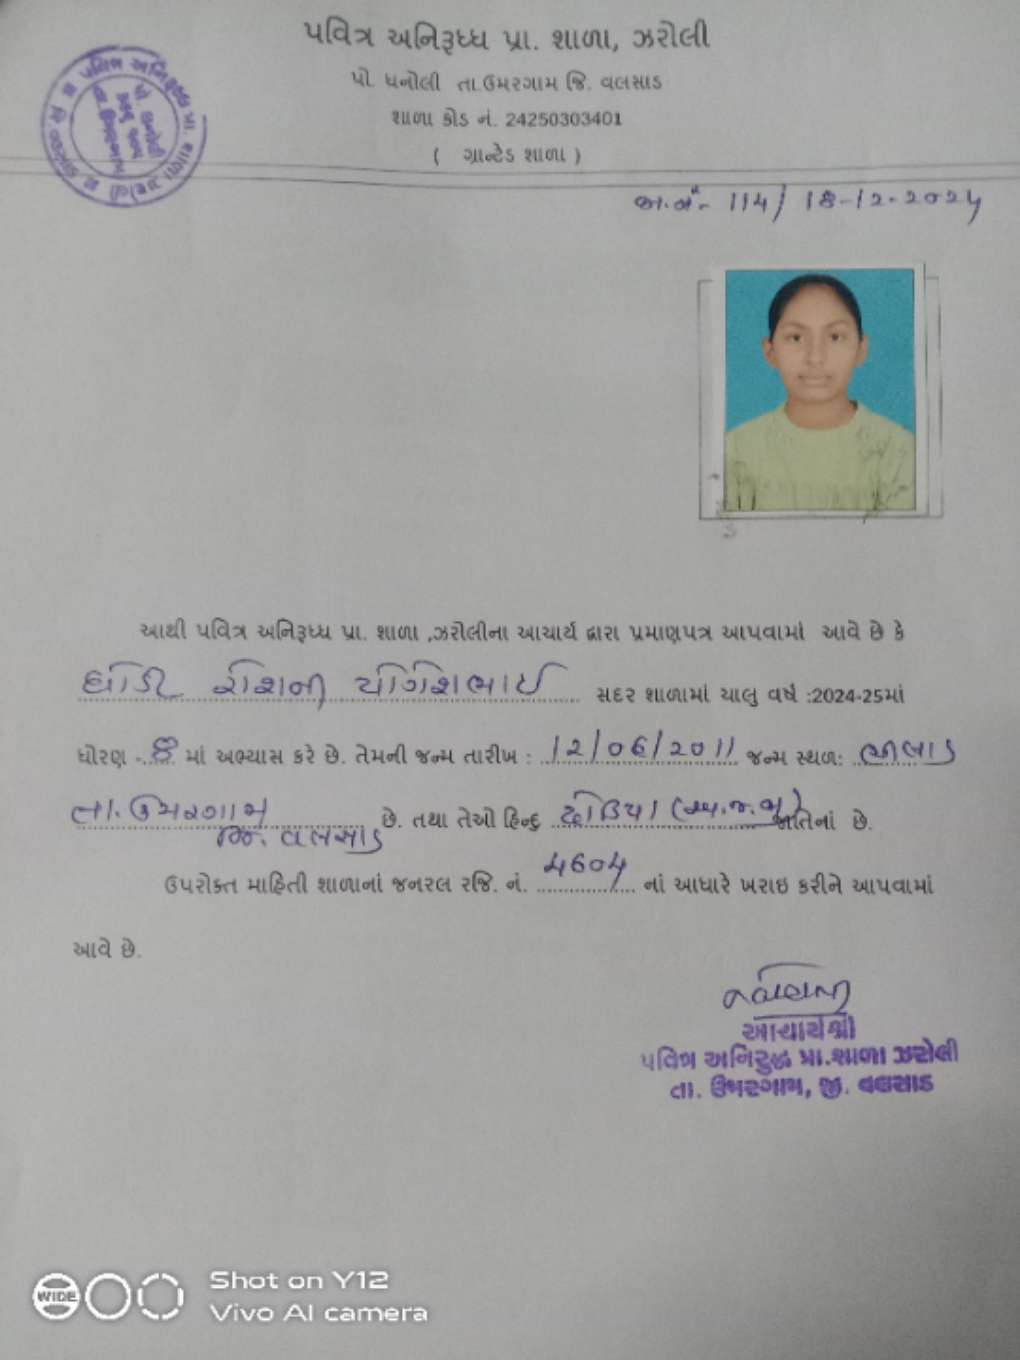 પવિત્ર અનિરૂધ્ધ પ્રા. શાળા, ઝરોલી
પો. ધનોલી તા.ઉમરગામ જિ. વલસાડ
શાળા કોડ નં. 24250303401
( ગ્રાન્ટેડ શાળા )
જા.નં.- 114/ 18-12-2024
આથી પવિત્ર અનિરૂધ્ધ પ્રા. શાળા ,ઝરોલીના આચાર્ય દ્વારા પ્રમાણપત્ર આપવામાં આવે છે કે
ધોડી રોશની યોગેશભાઈ સદર શાળામાં ચાલુ વર્ષ :2024-25માં
ધોરણ -8 માં અભ્યાસ કરે છે. તેમની જન્મ તારીખ : 12/06/2011 જન્મ સ્થળ: ભીલાડ
તા. ઉમરગામ છે. તથા તેઓ હિન્દુ ધોડિયા (અ.જ.જા) જાતિનાં છે.
જિ. વલસાડ
ઉપરોક્ત માહિતી શાળાનાં જનરલ રજિ. નં. 4604 નાં આધારે ખરાઇ કરીને આપવામાં
આવે છે.
આચાર્યશ્રી
પવિત્ર અનિરુદ્ધ પ્રા.શાળા ઝરોલી
તા. ઉમરગામ, જી. વલસાડ
WIDE
Shot on Y12
Vivo AI camera